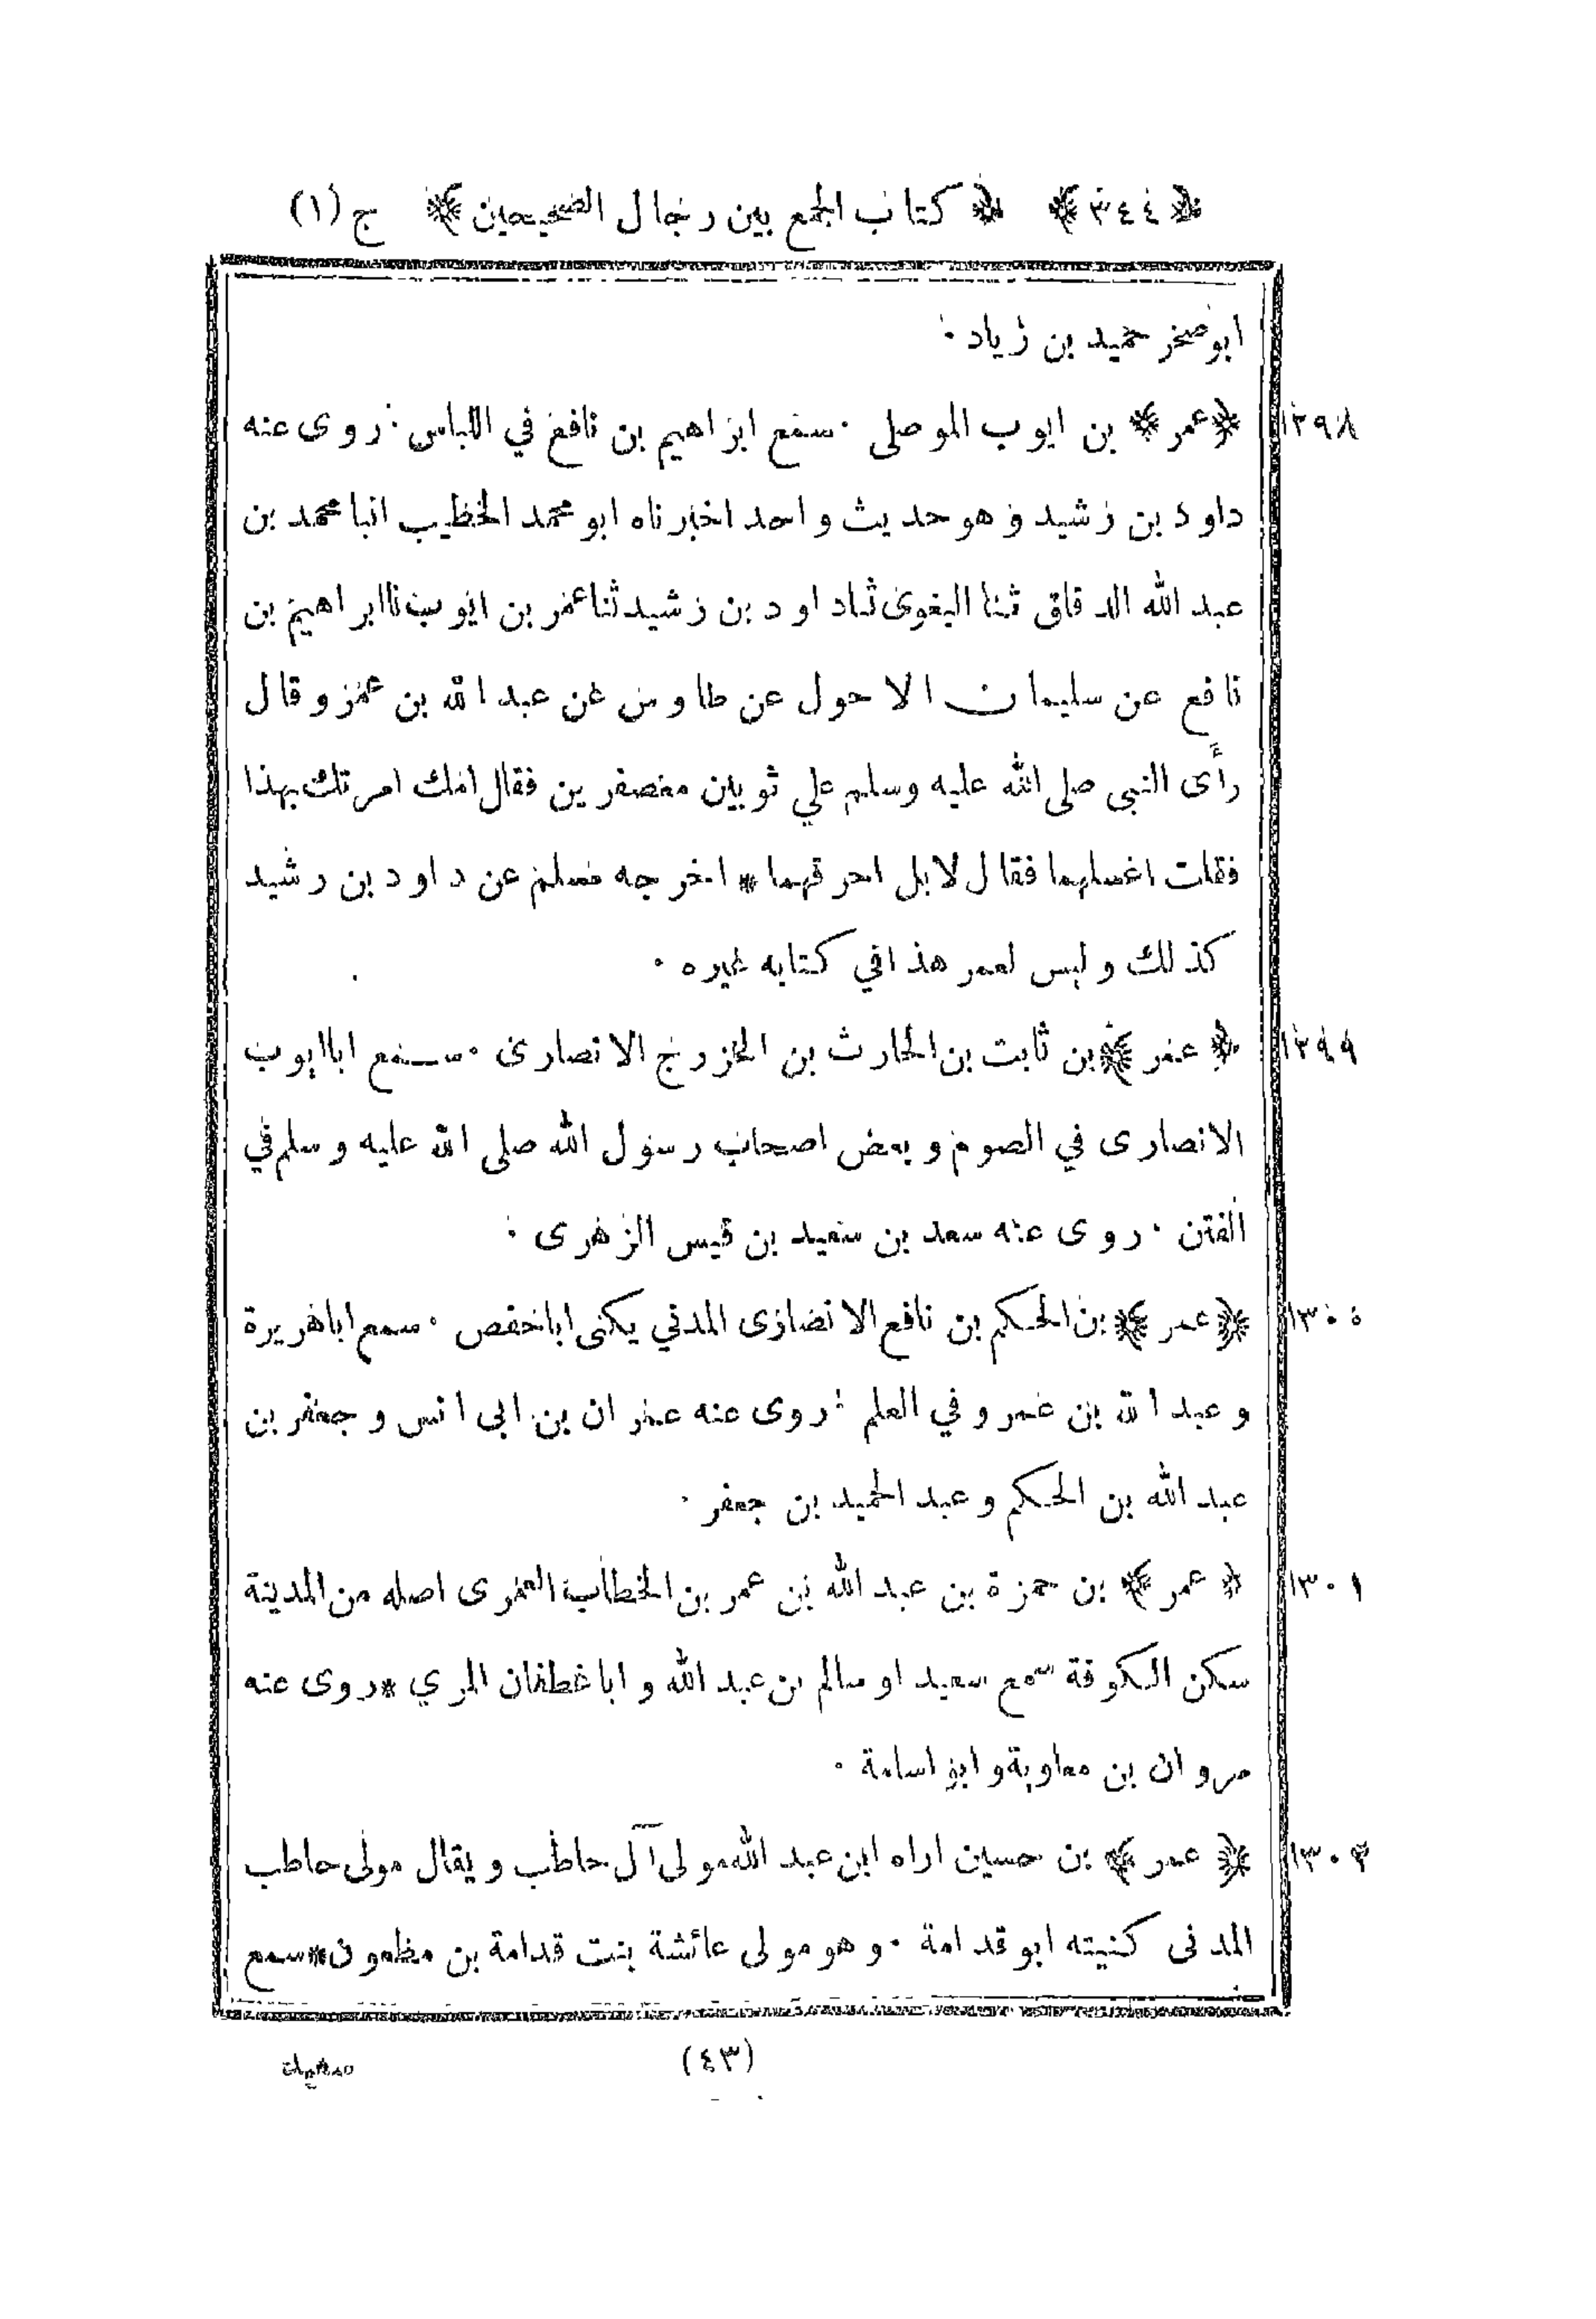 ﴿٣٤٤﴾ ﴿كتاب الجمع بين رجال الصحيحين﴾ ج (١)
ابوصخر حميد بن زياد ٠
١٢٩٨ ﴿عمر﴾ بن ايوب الموصلى ٠ سمع ابراهيم بن نافع في اللباس ٠ روى عنه
داود بن رشيد وهو حديث واحد اخبرناه ابو محمد الخطيب انبا محمد بن
عبد الله الدقاق ثنا البغوى ثنا داود بن رشيد ثنا عمر بن ايوب نا ابراهيم بن
نافع عن سليمان الاحول عن طاوس عن عبد الله بن عمرو قال
رأى النبى صلى الله عليه وسلم علي ثوبين معصفرين فقال امك امرتك بهذا
فقلت اغسلهما فقال لابل احرقهما * اخرجه مسلم عن داود بن رشيد
كذلك وليس لعمر هذا في كتابه غيره ٠
١٢٩٩ ﴿عمر﴾ بن ثابت بن الحارث بن الخزرج الانصارى ٠ سمع اباايوب
الانصارى في الصوم و بعض اصحاب رسول الله صلى الله عليه وسلم في
الفتن ٠ روى عنه سعد بن سعيد بن قيس الزهرى ٠
١٣٠٠ ﴿عمر﴾ بن الحكم بن نافع الانصارى المدني يكنى اباحفص ٠ سمع اباهريرة
و عبد الله بن عمرو في العلم ٠ روى عنه عمران بن ابى انس و جعفر بن
عبد الله بن الحكم و عبد الحميد بن جعفر ٠
١٣٠١ ﴿عمر﴾ بن حمزة بن عبد الله بن عمر بن الخطاب العمرى اصله من المدينة
سكن الكوفة سمع سعيد او سالم بن عبد الله و اباغطفان المري * روى عنه
مروان بن معاوية و ابو اسامة ٠
١٣٠٢ ﴿عمر﴾ بن حسين اراه ابن عبد الله مولى آل حاطب و يقال مولى حاطب
المدنى كنيته ابو قدامة ٠ وهو مولى عائشة بنت قدامة بن مظعون * سمع
(٤٣)